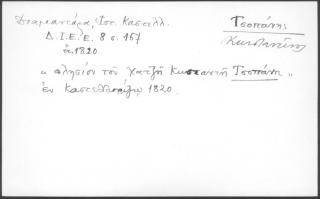 Διαμαντάρα, Ιστ. Καστελλ. Τσοπάνης
Δ.Ι.Ε.Ε. 8 σ. 167 Κωνσταντῖνος
1820
πλησίον τοῦ χατζῆ Κωσταντῆ Τσοπάνη "
ἐν Καστελλορίζῳ 1820.